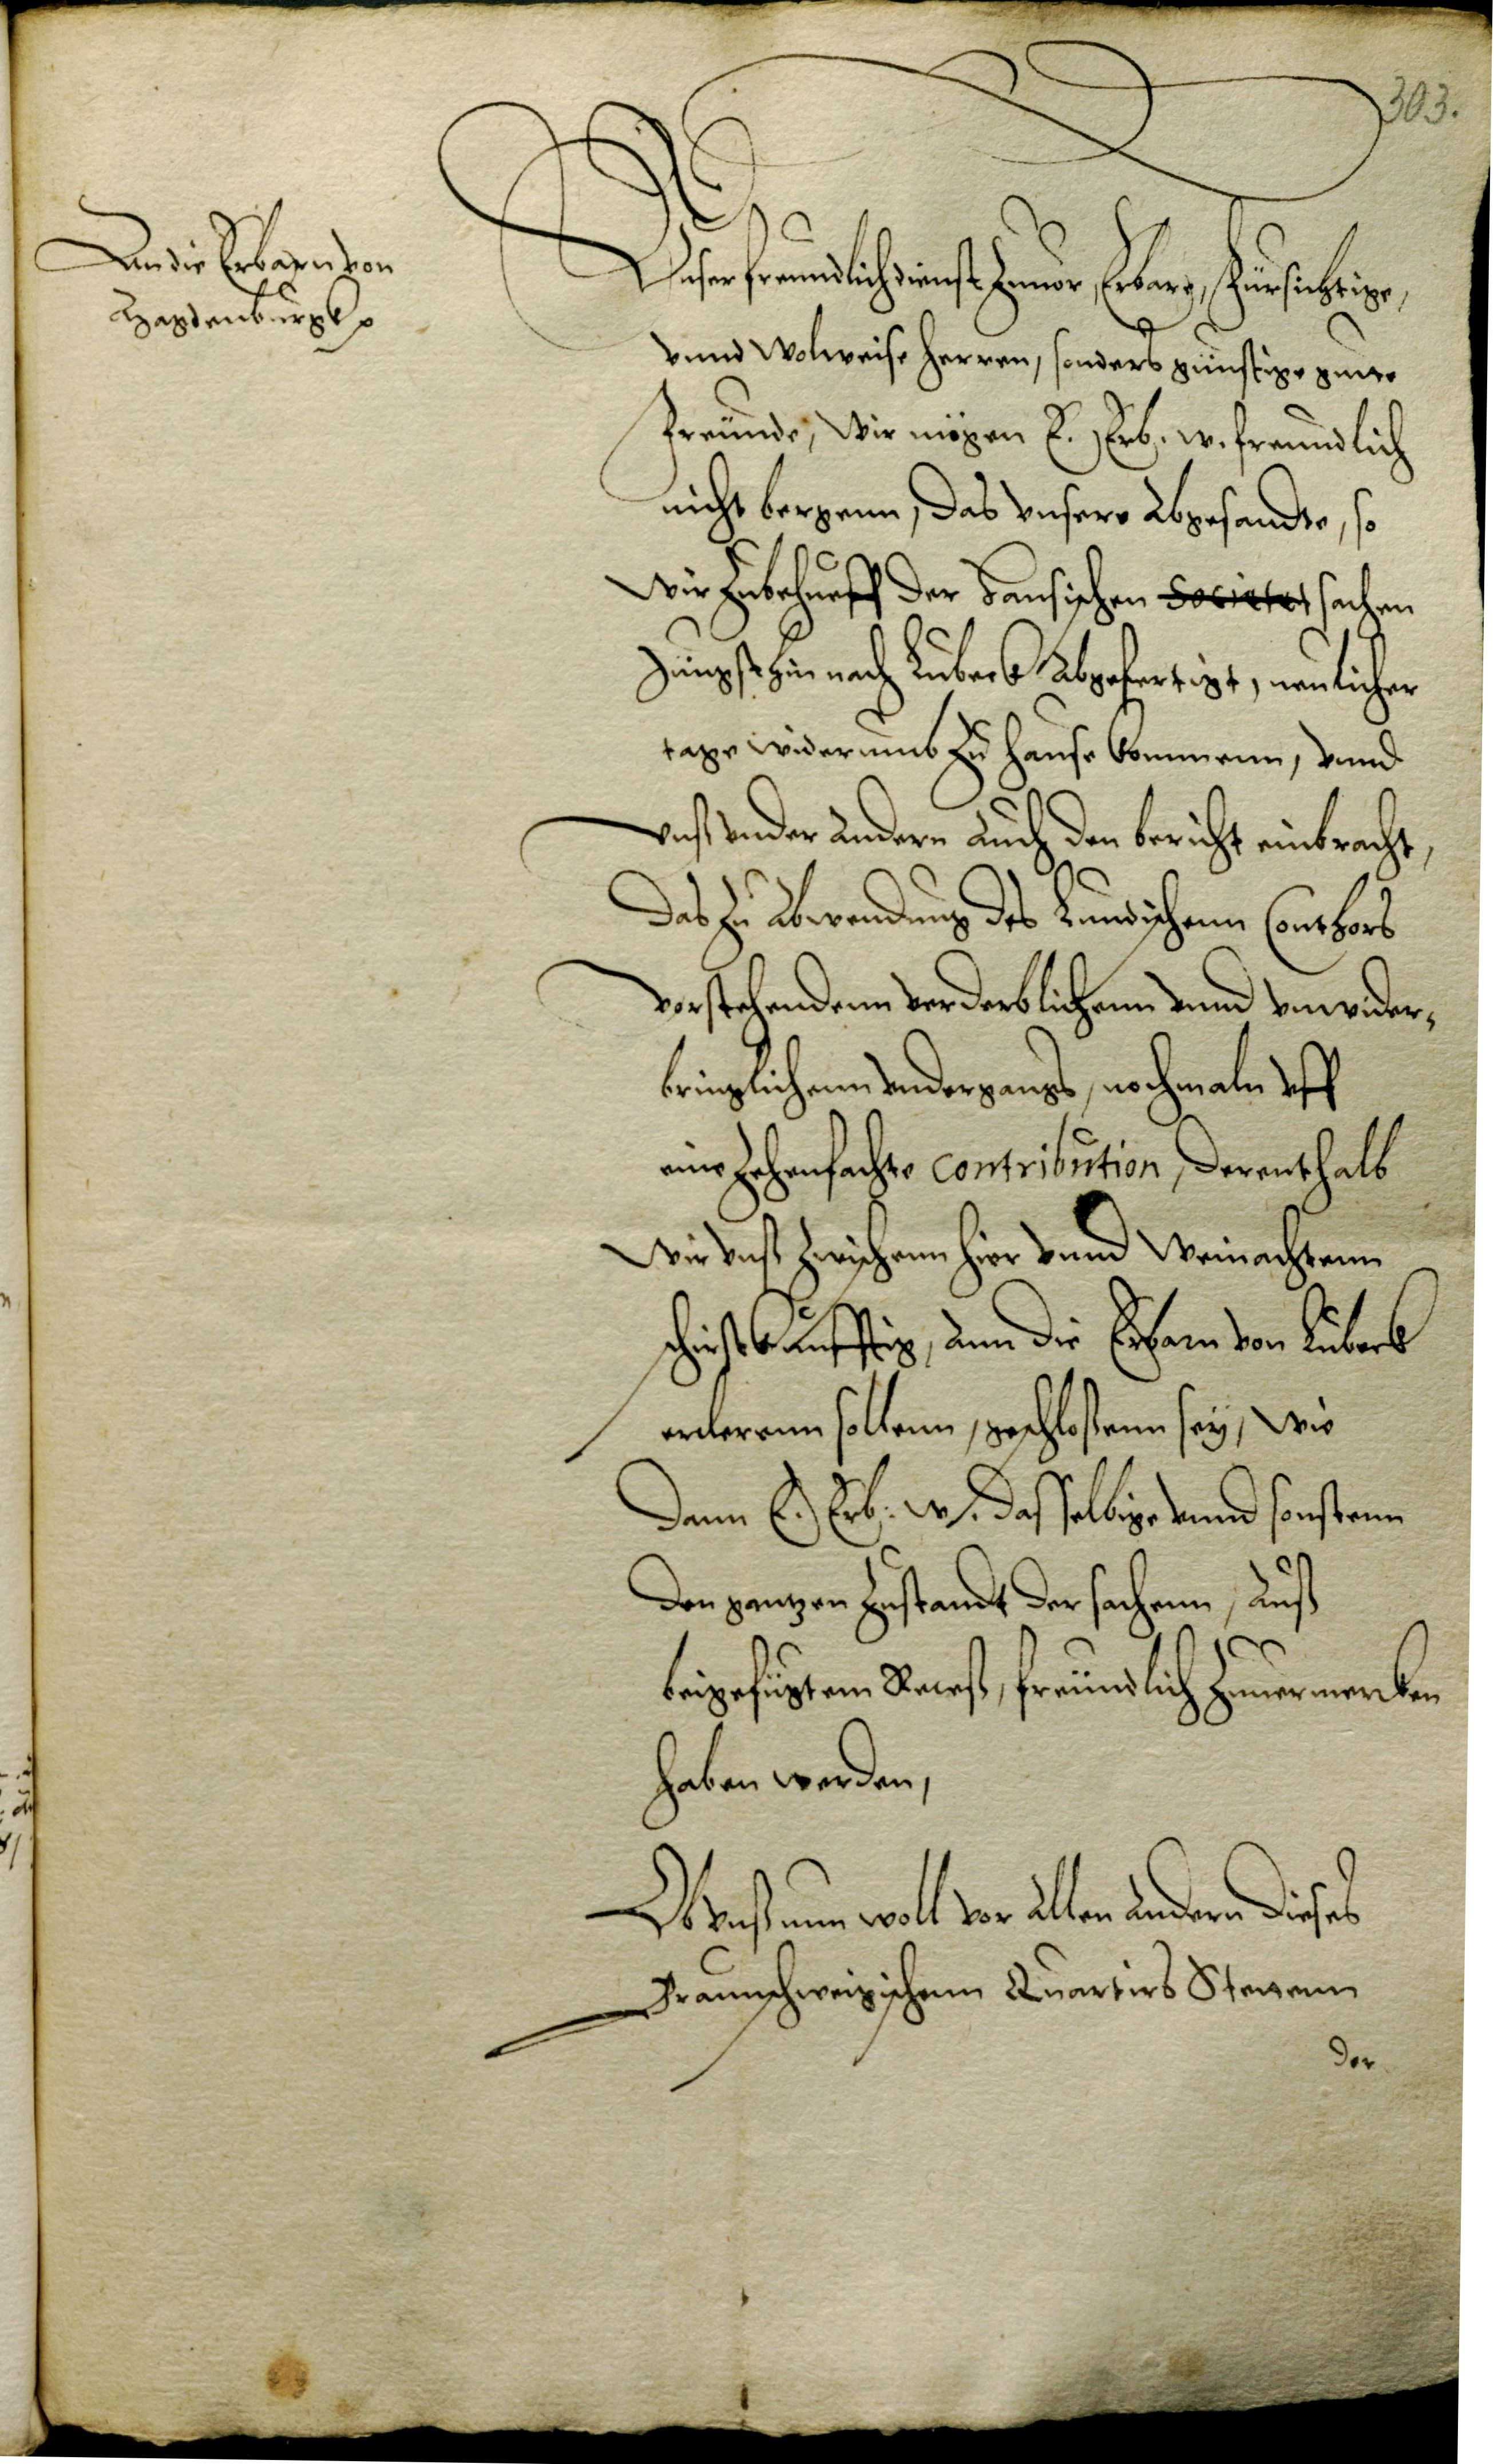 303.
An die Erbarn von
Magdenburgk
Vnser freundlich dienst zuuor, Erbare, Fürsichtige,
vnnd Wolweise herren, sonders günstige gute
Freunde, Wir mögen E. Erb. w. freundlich
nicht bergenn, Das vnsere Abgesandte, so
Wir zubehueff der Hansischen Societet sachen
Jüngsthin nach Lubeck Abgefertigt, neulicher
tage widerumb zu hause kommenn, vnnd
vnß vnder andern auch den bericht einbracht,
Das zu Abwendung des Lundischenn Conthors
vorstehendenn verderblichenn vnnd vnwider-
bringlichenn vndergangs, nochmaln vff
eine Zehenfachte Contribution, Derenthalb
Wir vnß zwischenn hier vnnd Weinachtenn
schirstkunfftig, ann die Erbarn von Lubeck
erclerenn sollenn, geschloßenn sey, Wie
Dann E. Erb. w. dasselbige vnnd sonstenn
Den gantzen Zustandt der sachenn, Auß
beigefügtem Receß, freundlich zuuermercken
haben werden,
Ob vnß nun woll vor Allen Andern Dieses
Braunschweigischenn Quartirs Stettenn
der